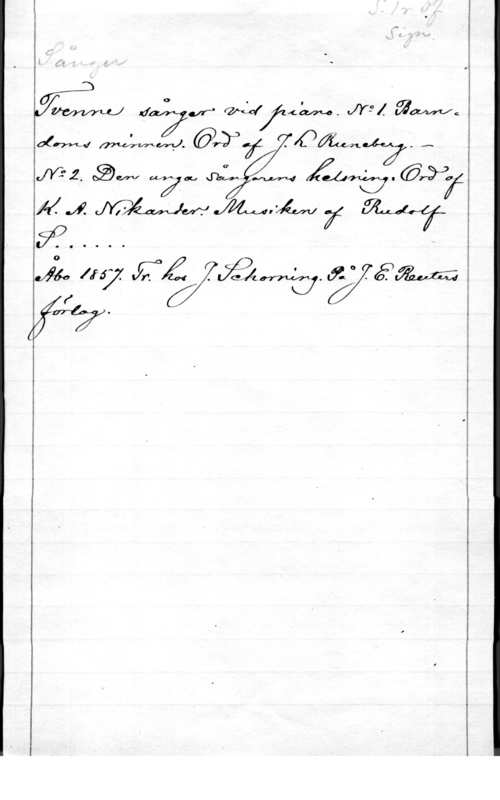 Sånger
Tvenne sånger vid piano. Nº 1. Barn-
doms minnen. Ord af J. L. Runeberg. —
Nº 2. Den unga sångarens helsning. Ord af
K. A. Nikander. Musiken af Rudolf
S. . . . . .
Åbo 1857. Tr. hos J. Schorning. På J. E. Reuters
förlag.